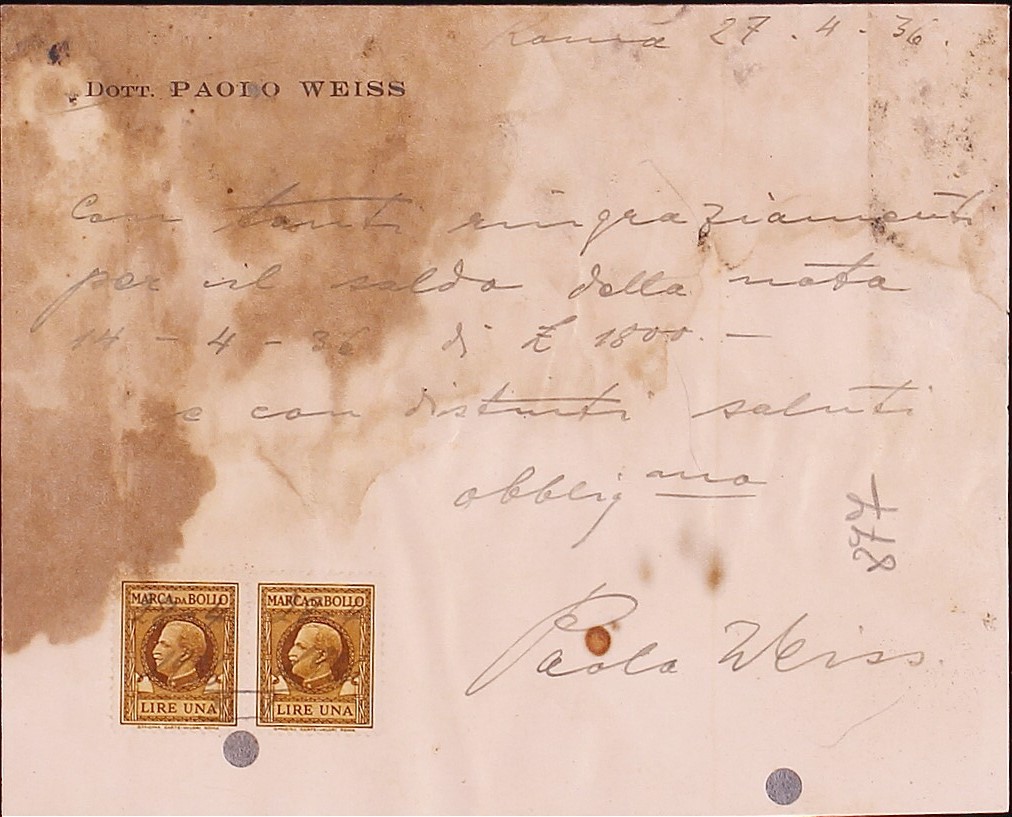 Roma 27 . 4 . 36 .
DOTT. PAOLO WEISS
Con tanti ringraziamenti
per il saldo della nota
14 - 4 - 36 di £ 1800. —
e con distinti saluti
obbligmo
Paolo Weiss.
MARCA DA BOLLO MARCA DA BOLLO
LIRE UNA LIRE UNA